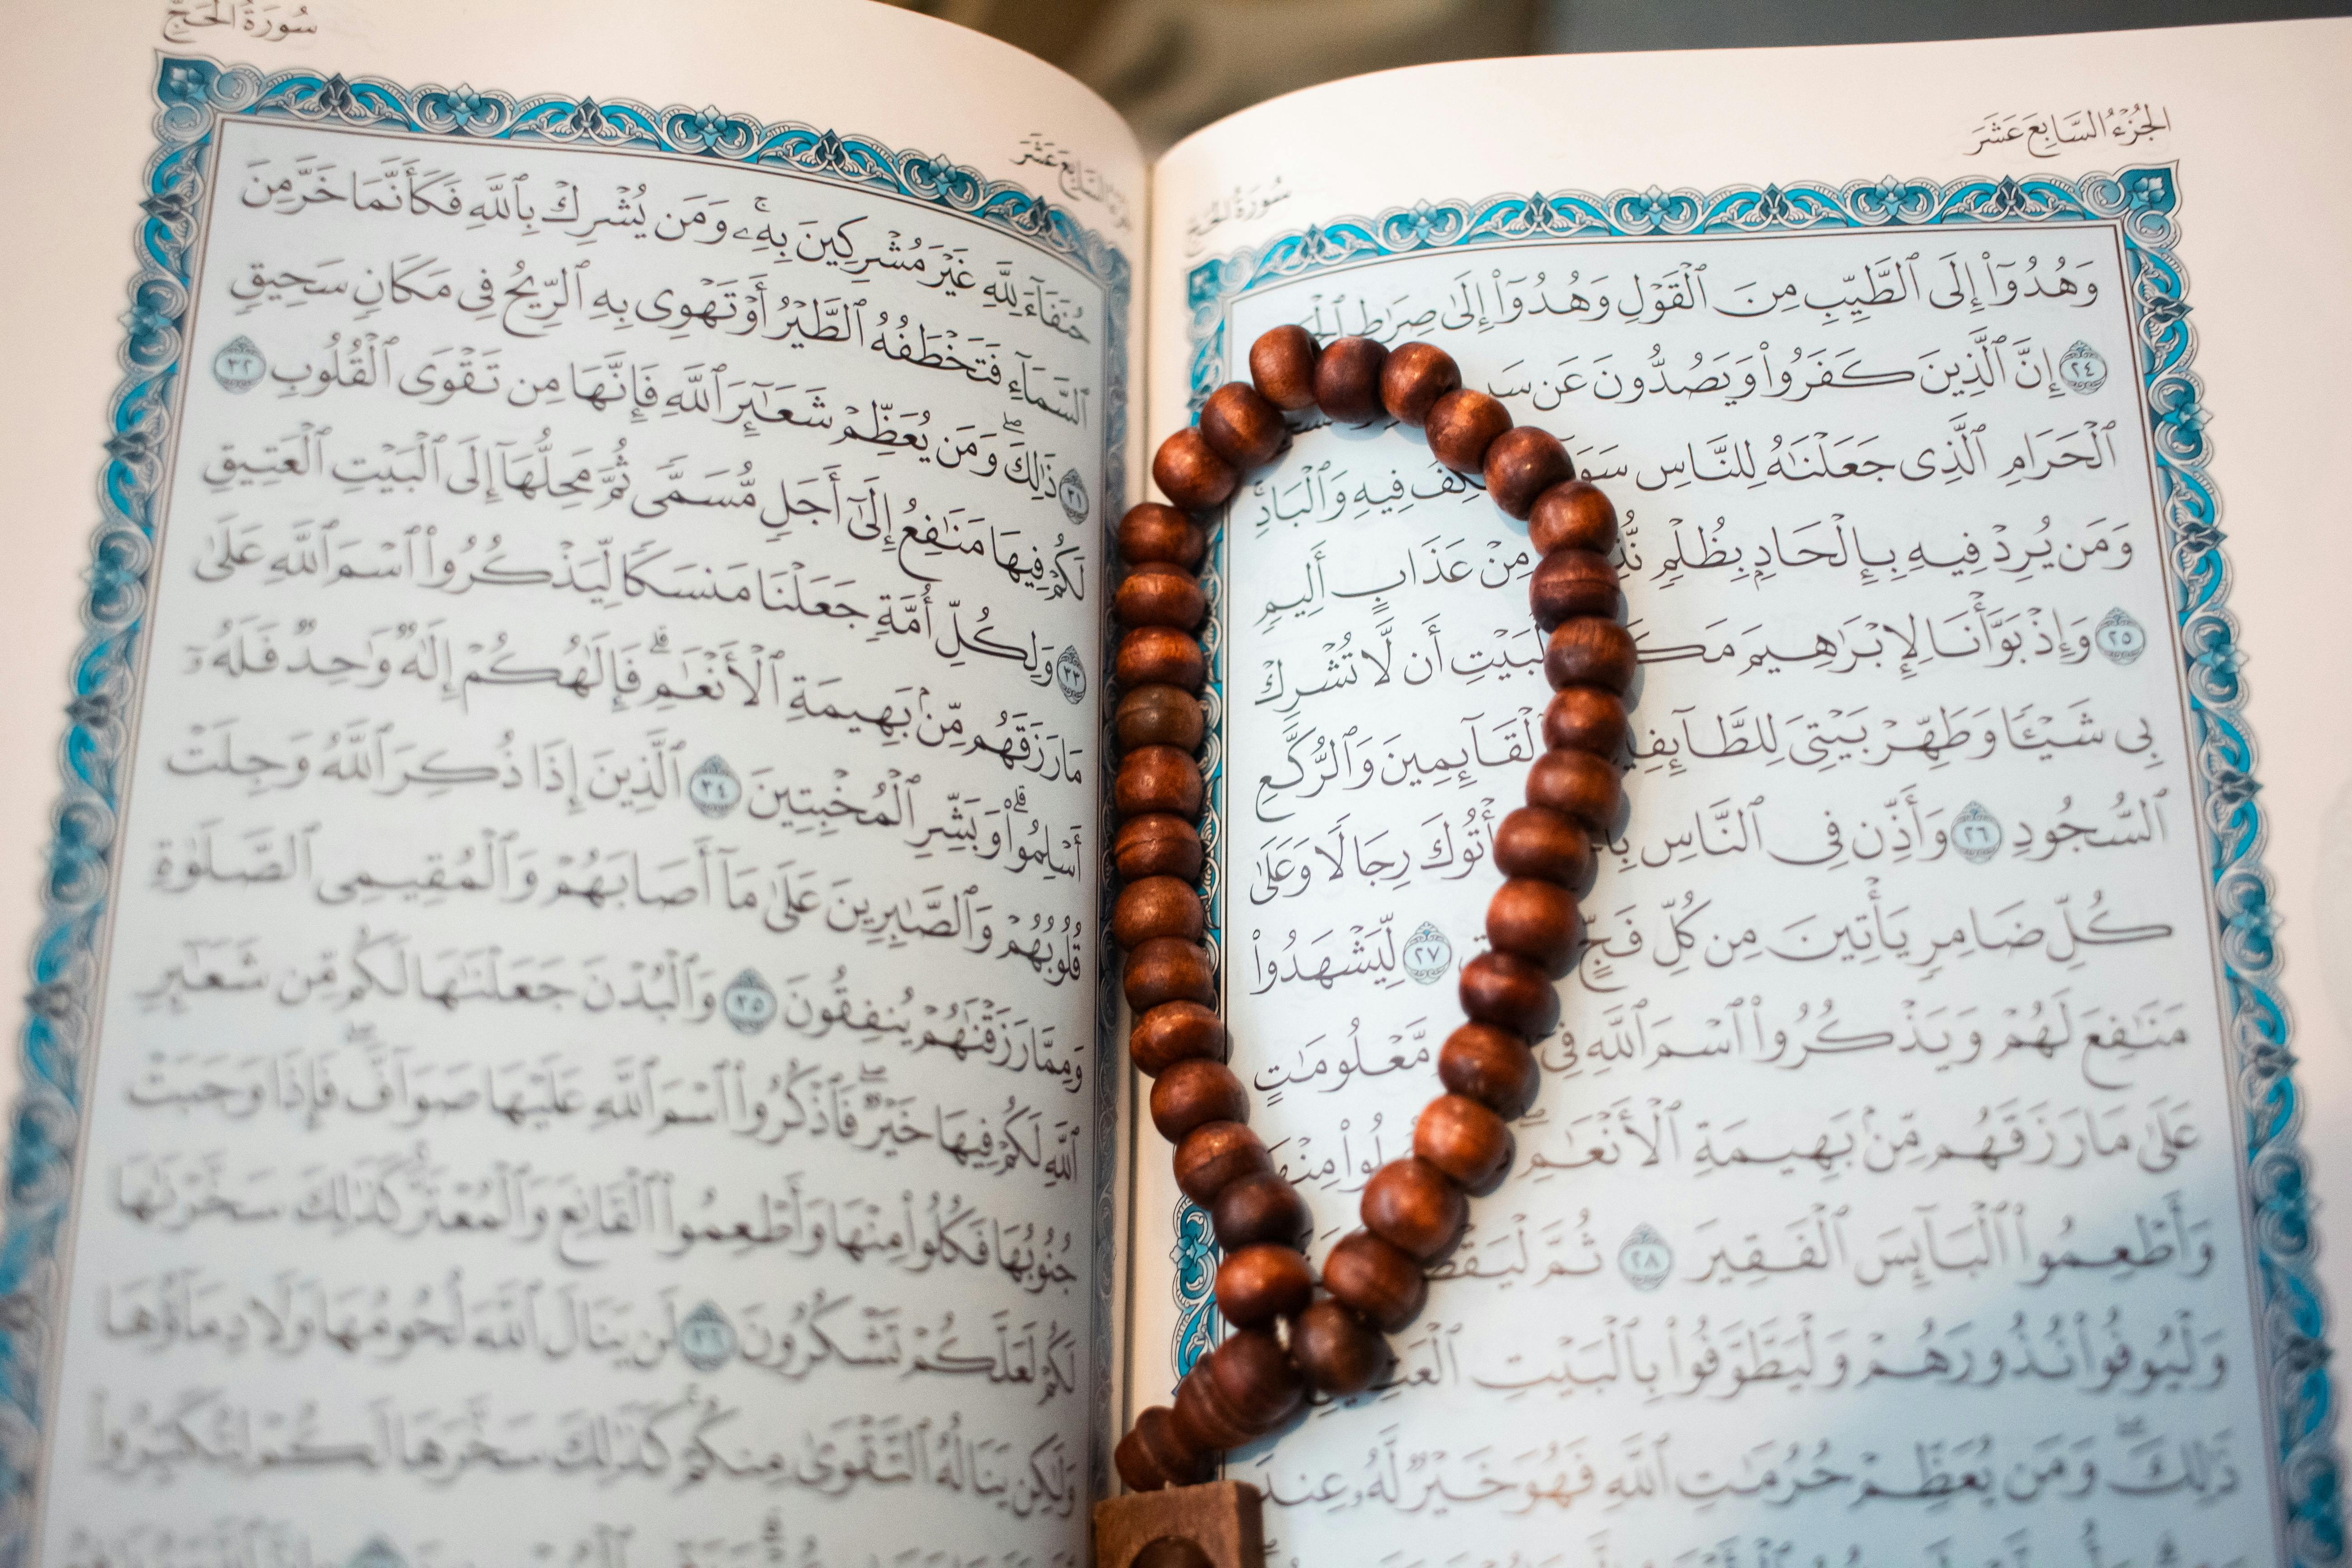 الجُزْءُ السَّابِعَ عَشَرَ
سُورَةُ الحَجِّ
وَهُدُوٓاْ إِلَى ٱلطَّيِّبِ مِنَ ٱلْقَوْلِ وَهُدُوٓاْ إِلَىٰ صِرَٰطِ
٢٤ إِنَّ ٱلَّذِينَ كَفَرُواْ وَيَصُدُّونَ عَن
ٱلْحَرَامِ ٱلَّذِى جَعَلْنَٰهُ لِلنَّاسِ فِيهِ وَٱلْبَادِۚ
وَمَن يُرِدْ فِيهِ بِإِلْحَادِۭ بِظُلْمٍ مِنْ عَذَابٍ أَلِيمٍ
٢٥ وَإِذْ بَوَّأْنَا لِإِبْرَٰهِيمَ أَن لَّا تُشْرِكْ
بِى شَيْـًٔا وَطَهِّرْ بَيْتِىَ لِلطَّآئِفِينَ وَٱلْقَآئِمِينَ وَٱلرُّكَّعِ
ٱلسُّجُودِ ٢٦ وَأَذِّن فِى ٱلنَّاسِ يَأْتُوكَ رِجَالًا وَعَلَىٰ
كُلِّ ضَامِرٍ يَأْتِينَ مِن كُلِّ فَجٍّ ٢٧ لِّيَشْهَدُواْ
مَنَٰفِعَ لَهُمْ وَيَذْكُرُواْ ٱسْمَ ٱللَّهِ فِىٓ مَّعْلُومَٰتٍ
عَلَىٰ مَا رَزَقَهُم مِّنۢ بَهِيمَةِ ٱلْأَنْعَٰمِۖ
وَأَطْعِمُواْ ٱلْبَآئِسَ ٱلْفَقِيرَ ٢٨ ثُمَّ
وَلْيُوفُواْ نُذُورَهُمْ وَلْيَطَّوَّفُواْ بِٱلْبَيْتِ
ذَٰلِكَۖ وَمَن يُعَظِّمْ حُرُمَٰتِ ٱللَّهِ فَهُوَ خَيْرٌ لَّهُۥ عِندَ
سُورَةُ الحَجِّ
حُنَفَآءَ لِلَّهِ غَيْرَ مُشْرِكِينَ بِهِۦۚ وَمَن يُشْرِكْ بِٱللَّهِ فَكَأَنَّمَا خَرَّ مِنَ
ٱلسَّمَآءِ فَتَخْطَفُهُ ٱلطَّيْرُ أَوْ تَهْوِى بِهِ ٱلرِّيحُ فِى مَكَانٍ سَحِيقٍ
٣١ ذَٰلِكَۖ وَمَن يُعَظِّمْ شَعَٰٓئِرَ ٱللَّهِ فَإِنَّهَا مِن تَقْوَى ٱلْقُلُوبِ ٣٢
لَكُمْ فِيهَا مَنَٰفِعُ إِلَىٰٓ أَجَلٍ مُّسَمًّى ثُمَّ مَحِلُّهَآ إِلَى ٱلْبَيْتِ ٱلْعَتِيقِ
٣٣ وَلِكُلِّ أُمَّةٍ جَعَلْنَا مَنسَكًا لِّيَذْكُرُواْ ٱسْمَ ٱللَّهِ عَلَىٰ
مَا رَزَقَهُم مِّنۢ بَهِيمَةِ ٱلْأَنْعَٰمِۗ فَإِلَٰهُكُمْ إِلَٰهٌ وَٰحِدٌ فَلَهُۥٓ
أَسْلِمُواْۗ وَبَشِّرِ ٱلْمُخْبِتِينَ ٣٤ ٱلَّذِينَ إِذَا ذُكِرَ ٱللَّهُ وَجِلَتْ
قُلُوبُهُمْ وَٱلصَّٰبِرِينَ عَلَىٰ مَآ أَصَابَهُمْ وَٱلْمُقِيمِى ٱلصَّلَوٰةِ
وَمِمَّا رَزَقْنَٰهُمْ يُنفِقُونَ ٣٥ وَٱلْبُدْنَ جَعَلْنَٰهَا لَكُم مِّن شَعَٰٓئِرِ
ٱللَّهِ لَكُمْ فِيهَا خَيْرٌۖ فَٱذْكُرُواْ ٱسْمَ ٱللَّهِ عَلَيْهَا صَوَآفَّۖ فَإِذَا وَجَبَتْ
جُنُوبُهَا فَكُلُواْ مِنْهَا وَأَطْعِمُواْ ٱلْقَانِعَ وَٱلْمُعْتَرَّۚ كَذَٰلِكَ سَخَّرْنَٰهَا
لَكُمْ لَعَلَّكُمْ تَشْكُرُونَ ٣٦ لَن يَنَالَ ٱللَّهَ لُحُومُهَا وَلَا دِمَآؤُهَا
وَلَٰكِن يَنَالُهُ ٱلتَّقْوَىٰ مِنكُمْۚ كَذَٰلِكَ سَخَّرَهَا لَكُمْ لِتُكَبِّرُواْ